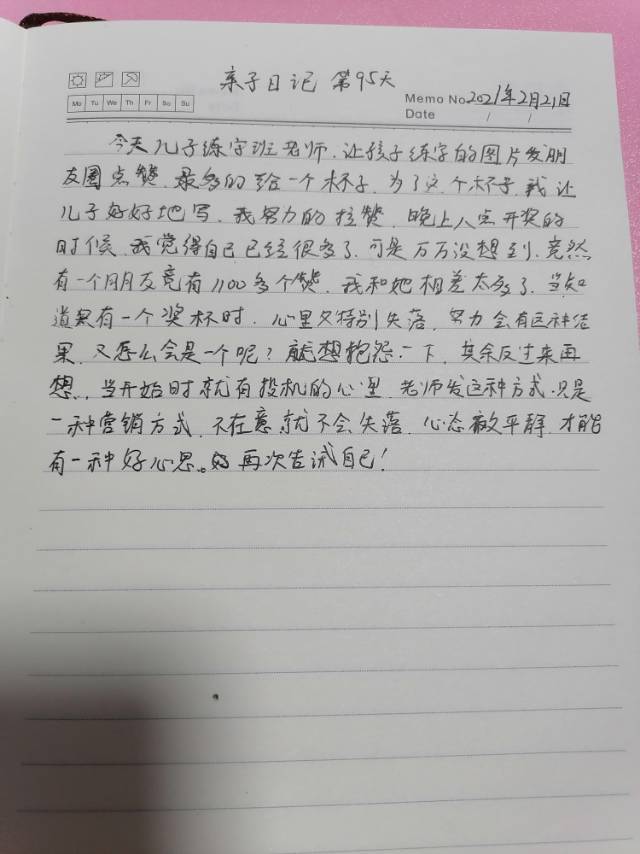 亲子日记 第95天
Mo Tu We Th Fr Sa Su
Memo No. 2021年2月21日
Date / /
今天儿子练字班老师.让孩子练字的图片发朋
友圈点赞.最多的给一个杯子.为了这个杯子.我让
儿子好好地写.我努力的拉赞.晚上八点开奖的
时候.我觉得自己已经很多了.可是万万没想到.竟然
有一个朋友竟有1100多个赞.我和她相差太多了.当知
道只有一个奖杯时.心里又特别失落.努力会有这种结
果.又怎么会是一个呢?就想抱怨一下.其余反过来再
想.当开始时就有投机的心里.老师发这种方式.只是
一种营销方式.不在意就不会失落.心态放平静.才能
有一种好心思。再次告诫自己!